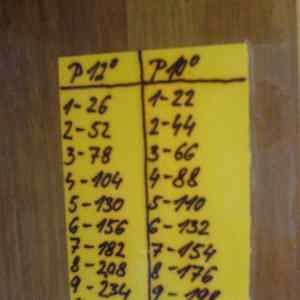 P 12° P 10°
1-26 1-22
2-52 2-44
3-78 3-66
4-104 4-88
5-130 5-110
6-156 6-132
7-182 7-154
8-208 8-176
9-234 9-198